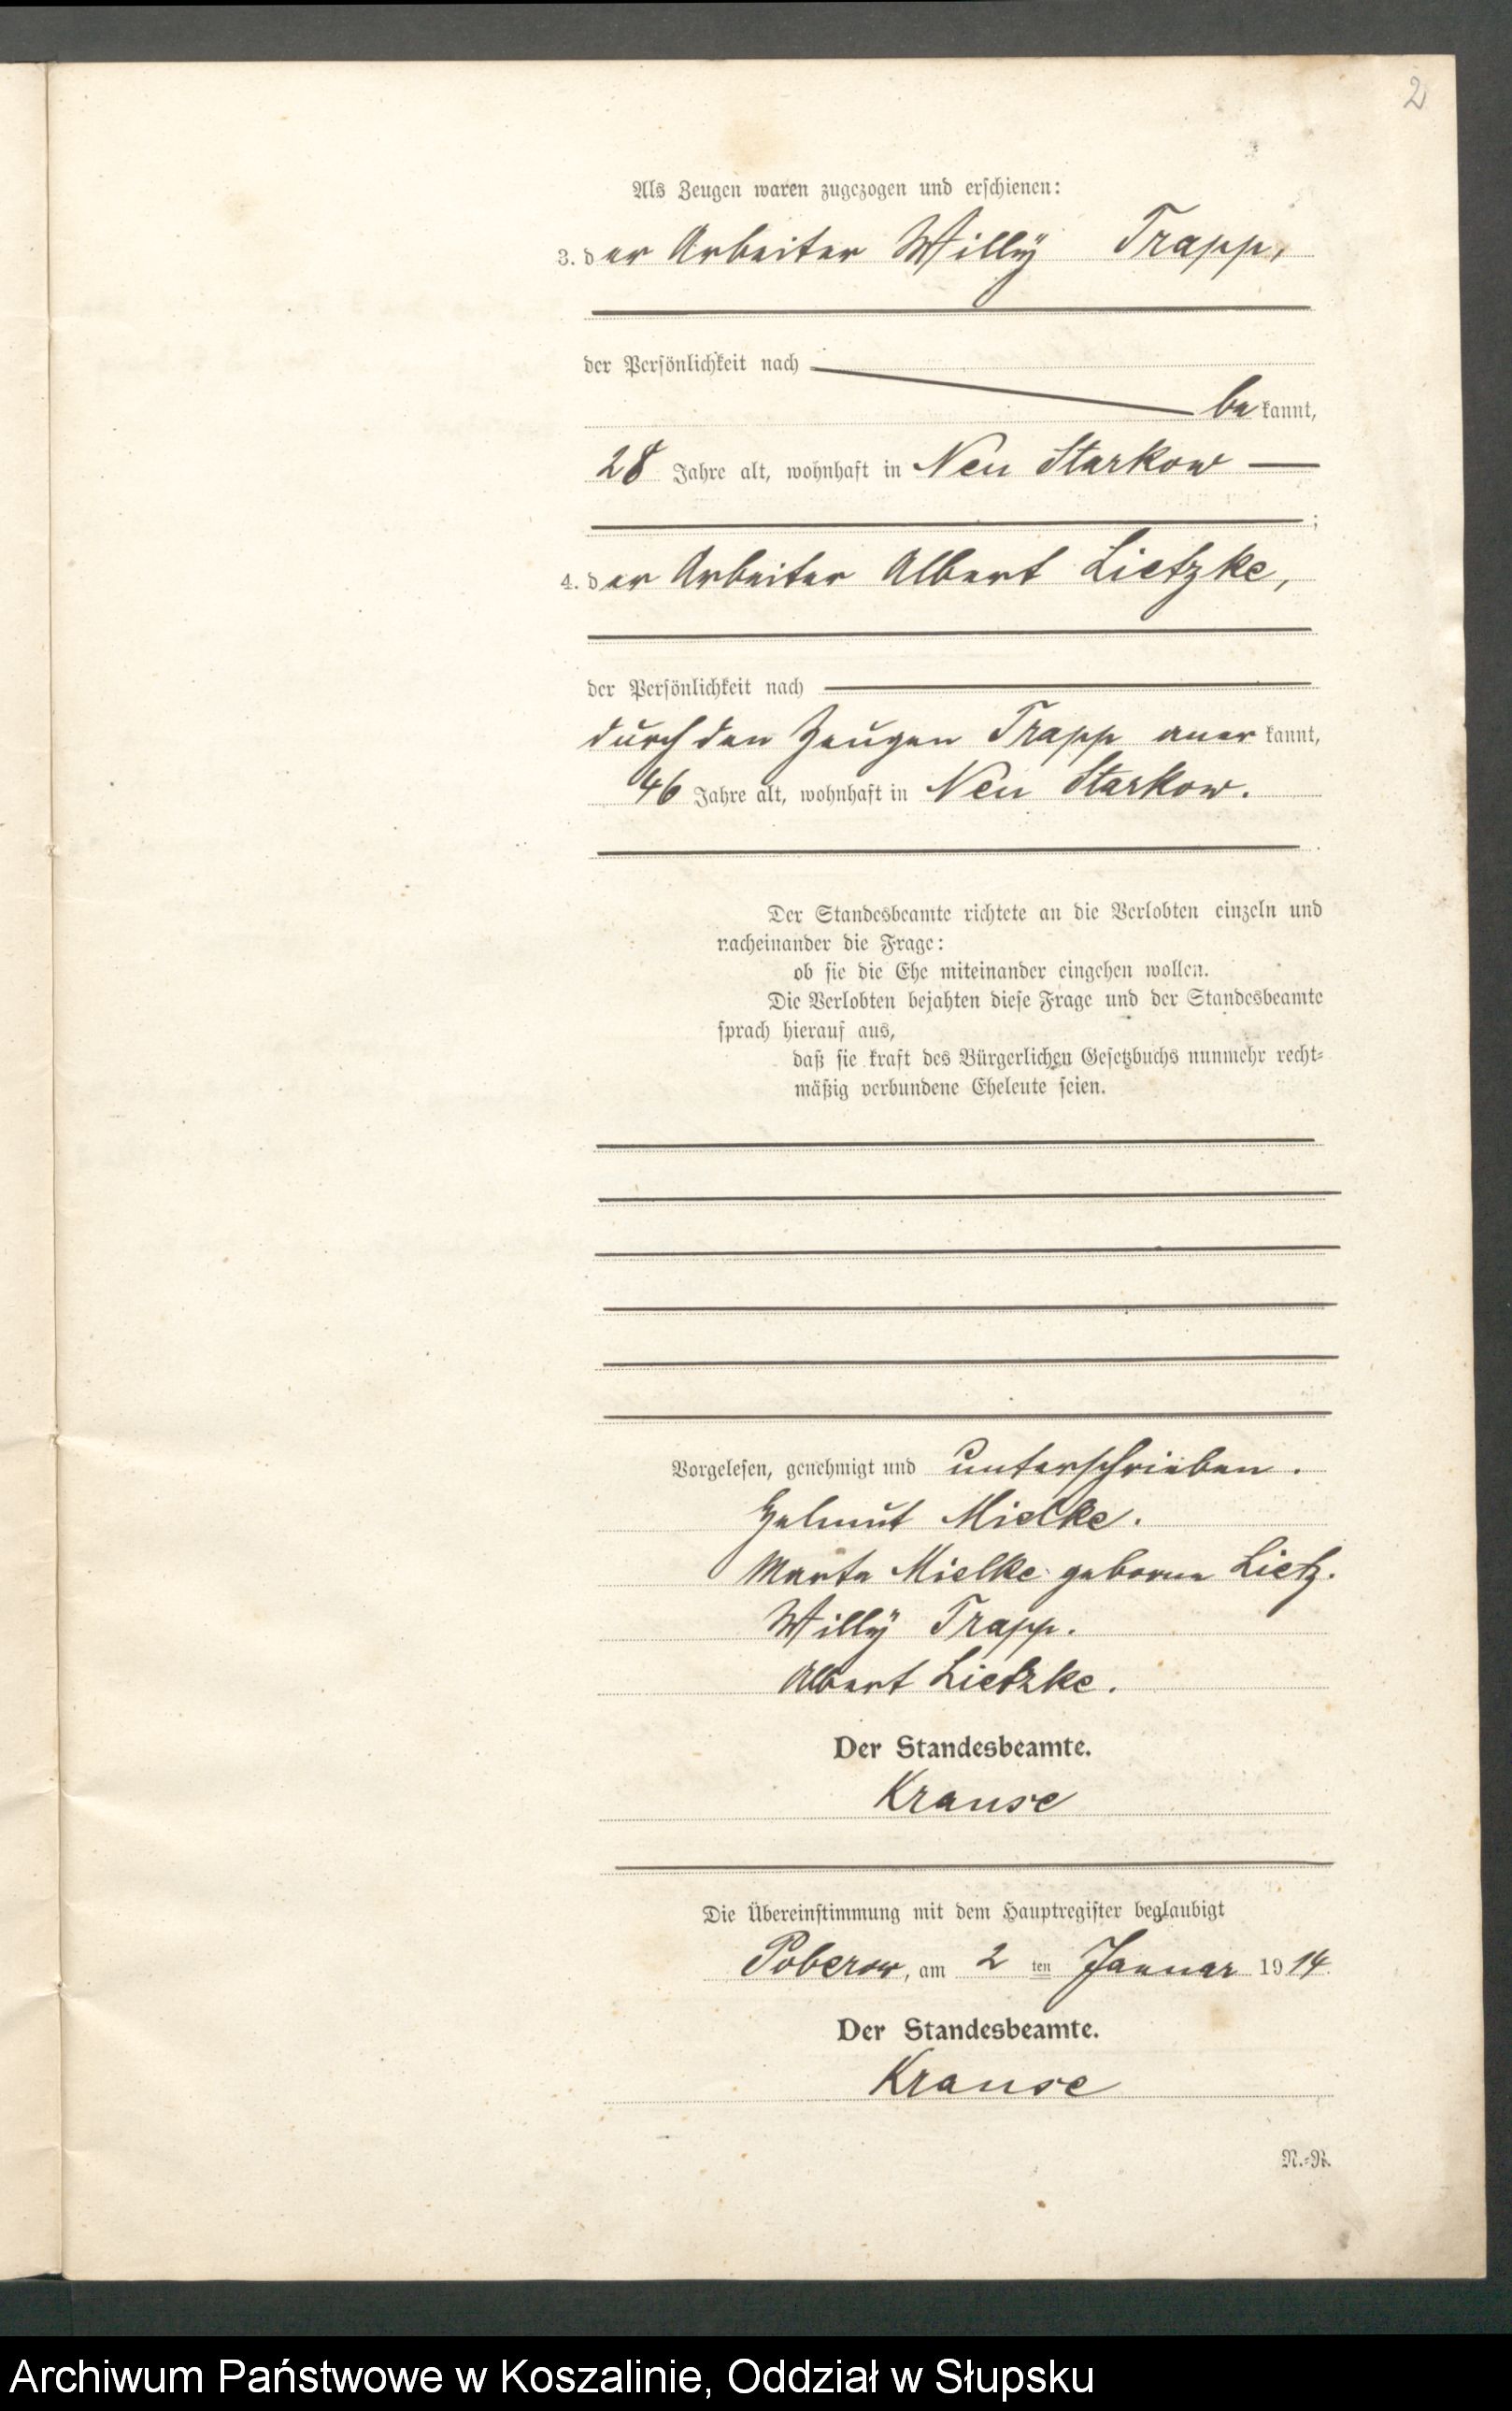 2
Als Zeugen waren zugezogen und erschienen:
3. der Arbeiter Willy Trapp,
der Persönlichkeit nach
bekannt,
28 Jahre alt, wohnhaft in Neu Starkow
;
4. der Arbeiter Albert Lietzke,
der Persönlichkeit nach
durch den Zeugen Trapp anerkannt,
46 Jahre alt, wohnhaft in Neu Starkow.
Der Standesbeamte richtete an die Verlobten einzeln und
nacheinander die Frage:
ob sie die Ehe miteinander eingehen wollen.
Die Verlobten bejahten diese Frage und der Standesbeamte
sprach hierauf aus,
daß sie kraft des Bürgerlichen Gesetzbuchs nunmehr recht-
mäßig verbundene Eheleute seien.
Vorgelesen, genehmigt und unterschrieben.
Helmut Mielke.
Marta Mielke geborne Lietz.
Willy Trapp.
Albert Lietzke.
Der Standesbeamte.
Krause
Die Übereinstimmung mit dem Hauptregister beglaubigt
Poberow, am 2 ten Januar 1914.
Der Standesbeamte.
Krause
N.-R.
Archiwum Państwowe w Koszalinie, Oddział w Słupsku